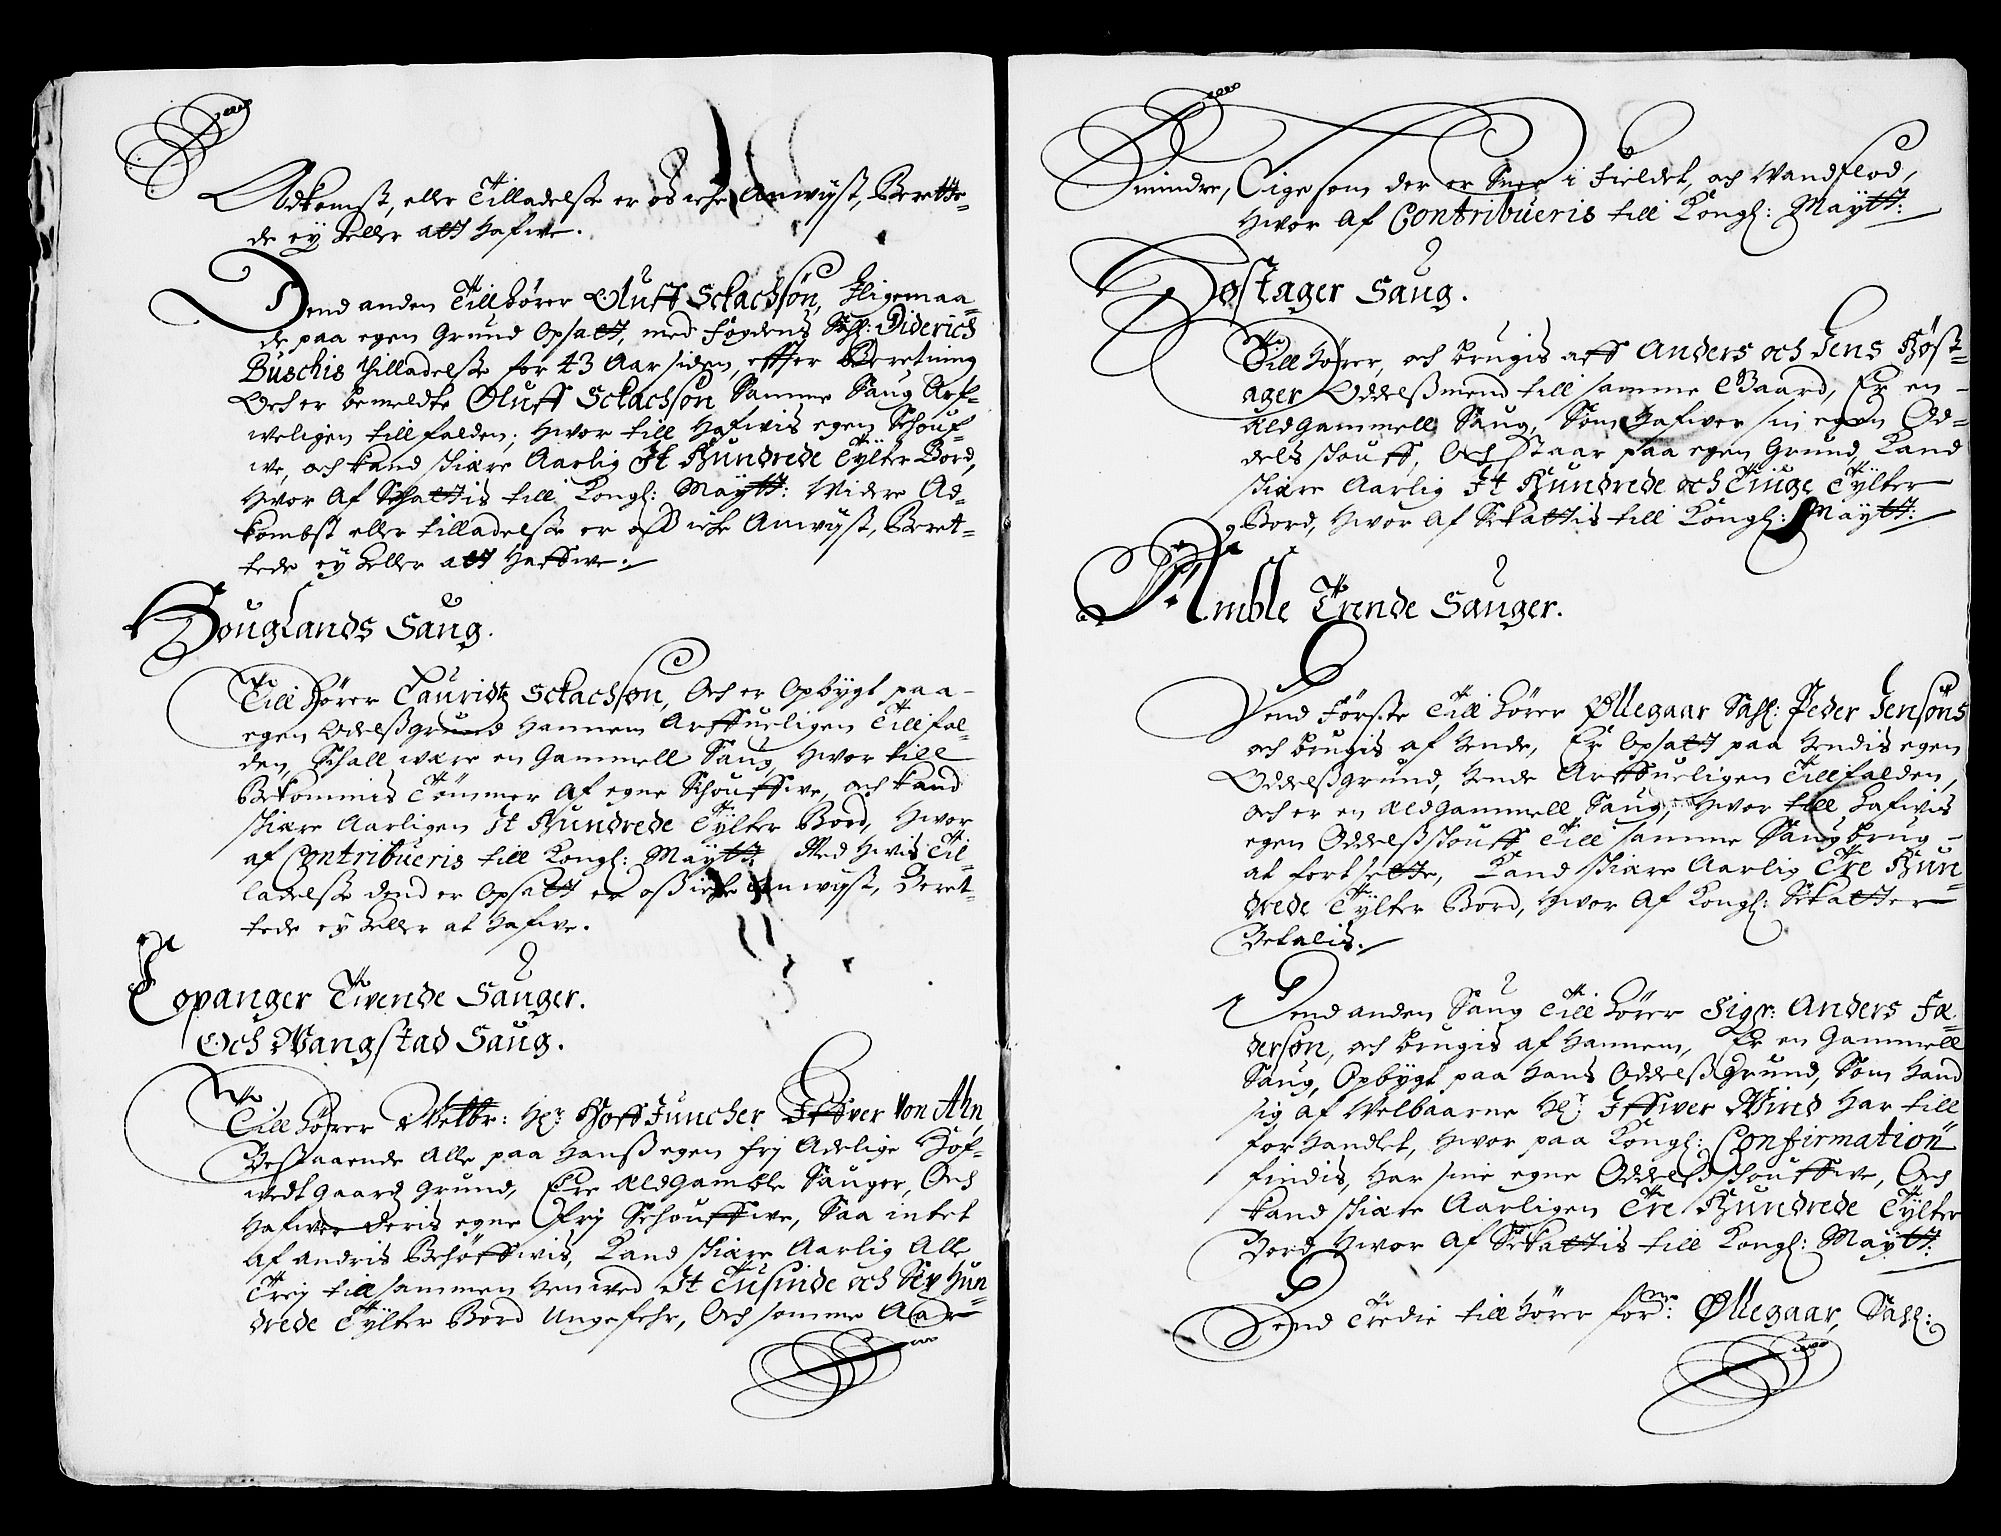 Adkomst, eller Tilladelsse er os icke Anwijst, Berette-
de eÿ heller att hafwe.
Dend anden Tillhörer Oluff Sckachsön, Iligemaa-
de paa egen Grund Opsatt, med Fogdens Sahl: Diderich
Buschis Tilladelsse for 43 Aar siden, effter Beretning
Och er bemeldte Oluff Sckachsön Samme Saug Arf-
weligen tillfalden, Hwor till Hafwis egen Schouf-
we, och kand skiære Aarlig It Hundrede Tÿlter Bord,
Hwor Af Schattis till Kongl: Maÿtt: Widere Ad-
kombst eller tilladelsse er oss icke Anwÿst, Beret-
tede eÿ heller att Haffwe.
Houglands Saug.
Till hörer Lauridtz Sckachsön, Och er Opbÿgt paa
egen Odelssgrund Hannem Arffueligen Tillfal-
den, Schall wære en Gammell Saug, Hwor till
Bekommis Tömmer Af egne Schouffwe, och kand
skiære Aarligen It Hundrede Tÿlter Bord, Hwor
af Contribueris till Kongl: Maÿtt: Med Hwis Til-
ladelsse dend er Opsatt er oss icke Anwÿst, Beret-
tede eÿ heller at Hafwe.
Copanger Twende Sauger.
Och Wangstad Saug.
Till hörer Welbr: Hr: Hoff Juncher Iffver Von Ahn,
Bestaaende Alle paa Hanss egen frij Adelige Hof-
wedtgaardz Grund, Ere Ældgamble Sauger, Och
Hafwer deris egne frij Schouffwe, Saa intet
Af andris Behöffwis, Kand skiære Aarlig Alle
Treÿ tillsammen Henwed It Tusinde och Sex Hun-
drede Tÿlter Bord Ungefehr, Och somme Aar
mindre, Lige som der er Snee i Fieldet, och Wandflod,
Hwor Af Contribueris till Kongl: Maÿtt:
Höstager Saug.
Till hörer, och brugis aff Anders och Jens Höst-
ager Oddelssmend till samme Gaard, Er en
Ældgammell Saug, Som Hafwer sin egen Od-
dels skouff, Och Staar paa egen Grund, Kand
skiære Aarlig It Hundrede och Tiuge Tÿlter
Bord, Hwor Af Sckattis till Kongl: Maÿtt:
Amble Trende Sauger.
Dend Förste Till hörer Øllegaar Sahl: Peder Jensöns
och brugis af Hende, Er Opsatt paa Hendis egen
Oddelssgrund, Hende Arffueligen Tillfalden,
och er en Ældgammell Saug, Hwor till hafwis
egen Oddelssskouff Till samme Saugbrug
at fortsette, Kand skiære Aarlig Tre Hun-
drede Tÿlter Bord, Hwor Af Kongl: Sckatter
Betalis.
Dend anden Saug Till hörer Sigr: Anders Fæ-
dersön, och brugis af Hannem, Er en Gammell
Saug, Opbÿgt paa Hans Oddelss Grund, Som Hand
sig af Welbaarne Hr: Iffwer Wind Har till
forhandlet, Hwor paa Kongl: Confirmation
findis, Har sine egne Oddelssschouffwe, Och
kand skiære Aarligen Tre Hundrede Tÿlter
Bord Hwor Af Sckattis till Kongl: Maÿtt:
Dend Tredie till hörer for.ne: Øllegaar, Sahl: